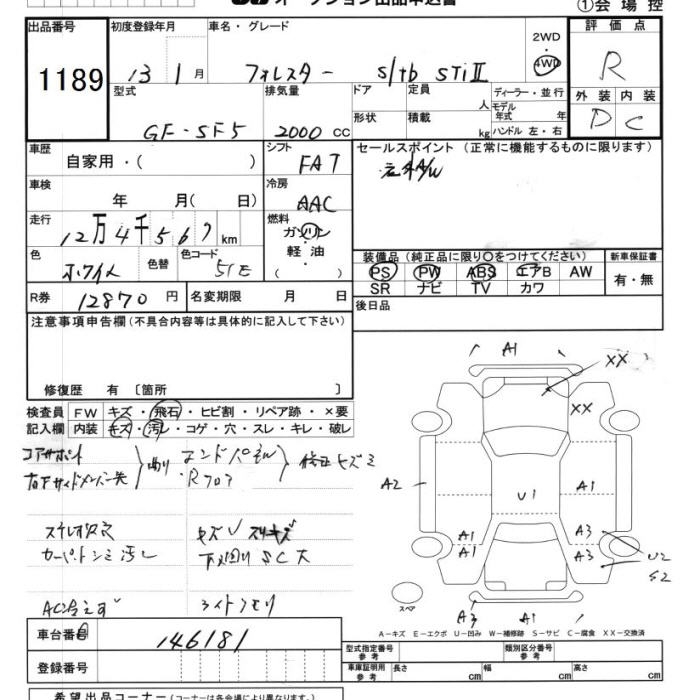 オークション出品申込書
①会場控
出品番号 初度登録年月 車名・グレード
評価点
2WD
4WD
1189
13 1月 フォレスター S/tb STiⅡ
R
型式 排気量 ドア 定員 ディーラー・並行
外装 内装
人 モデル年式 年
形状 積載
GF-SF5 2000 CC kg ハンドル 左・右
D C
車歴 シフト セールスポイント (正常に機能するものに限ります)
自家用・( ) FAT
車検 冷房
年 月( 日) AAC
走行 燃料
12万4千567km ガソリン
軽油
色 色替 色コード
ホワイト 51E
( )
装備品(純正品に限り○をつけてください) 新車保証書
PS PW ABS エアB AW 有・無
SR ナビ TV カワ
R券 12870円 名変期限 月 日 後日品
注意事項申告欄(不具合内容等は具体的に記入して下さい)
修復歴 有〔箇所 〕
検査員 FW キズ・飛石・ヒビ割・リペア跡・×要
記入欄 内装 キズ・汚レ・コゲ・穴・スレ・キレ・破レ
コアサポート
右Fサイドメンバー先 曲り エンドパネル
・Rフロア 修正キズミ
ステレオ欠
カーペットシミ汚レ 下廻りSC大
AC冷えず ライトクモリ
A1
XX
XX
A2
U1
A1
A1
A1
A3
A3
U2
S2
スペア
A3 A1
A-キズ E-エクボ U-凹み W-補修跡 S-サビ C-腐食 XX-交換済
車台番号 146181
登録番号
型式指定番号 参考 類別区分番号 参考
車庫証明用 参考 長さ cm 幅 cm 高さ cm
希望出品コーナー(コーナーは各会場により異なります。)